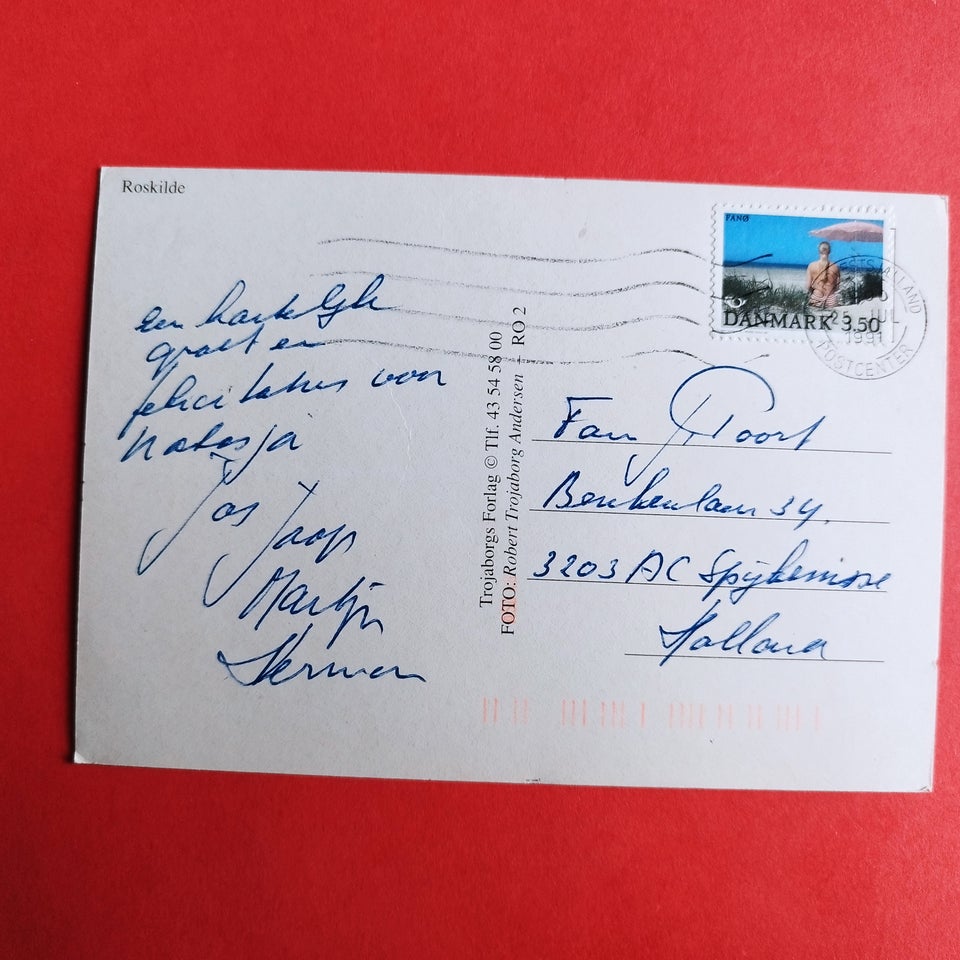 Roskilde
een hartelijk
groet en
felicitaties voor
Natasja
Jos
Jaap
Martijn
Herman
Trojaborgs Forlag © Tlf. 43 54 58 00
FOTO: Robert Trojaborg Andersen - RO 2
FANØ
DANMARK 3.50
25 JUL
1991
POSTCENTER
Fam Poort
34
3203 AC Spijkenisse
Holland